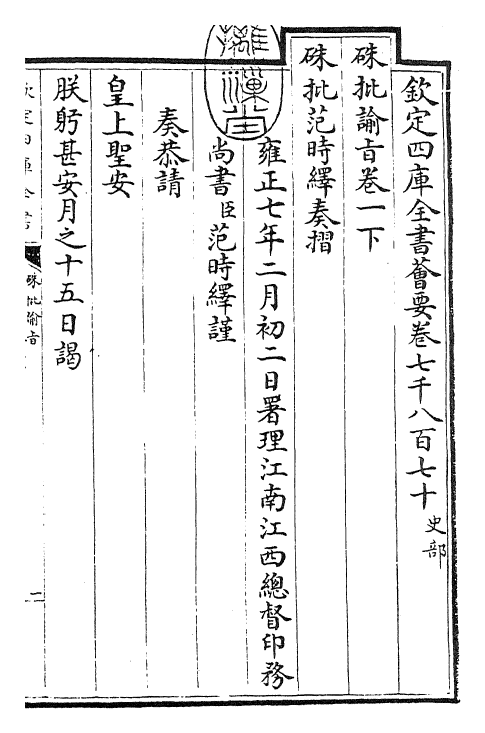 欽定四庫全書薈要卷七千八百七十 史部
硃批諭旨卷一下
硃批范時繹奏摺
雍正七年二月初二日署理江南江西總督印務
尚書臣范時繹謹
奏恭請
皇上聖安
朕躬甚安月之十五日謁
欽定四庫全書
硃批諭旨
一